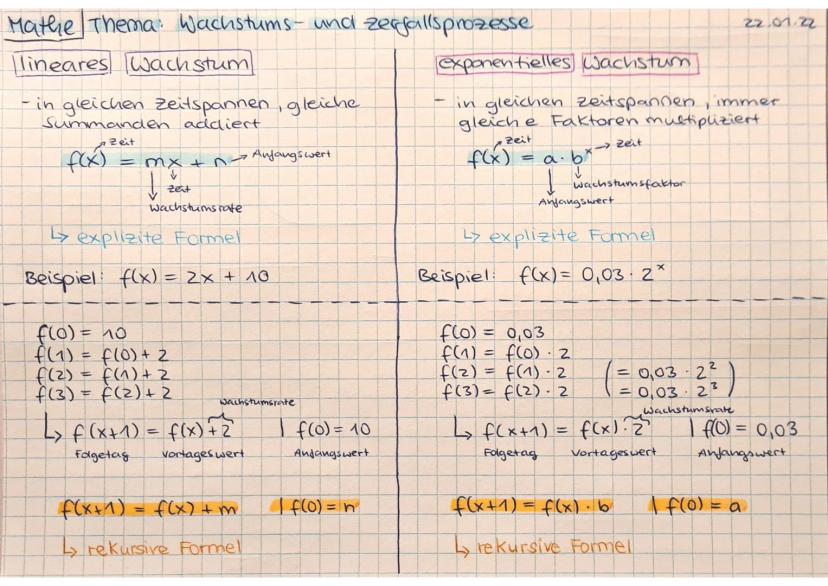 Mathe | Thema: Wachstums- und zerfallsprozesse 22.01.22
lineares Wachstum
- in gleichen Zeitspannen, gleiche
Summanden addiert
Zeit
f(x) = mx + n → Anfangswert
Zeit
Wachstumsrate
↳ explizite Formel
Beispiel: f(x) = 2x + 10
f(0) = 10
f(1) = f(0) + 2
f(2) = f(1) + 2
f(3) = f(2) + 2
Wachstumsrate
↳ f(x+1) = f(x) + 2 | f(0) = 10
Folgetag Vortageswert Anfangswert
f(x+1) = f(x) + m | f(0) = n
↳ rekursive Formel
exponentielles Wachstum
- in gleichen Zeitspannen, immer
gleiche Faktoren multipliziert
Zeit
f(x) = a · b^x → Zeit
Wachstumsfaktor
Anfangswert
↳ explizite Formel
Beispiel: f(x) = 0,03 · 2^x
f(0) = 0,03
f(1) = f(0) · 2
f(2) = f(1) · 2 (= 0,03 · 2²)
f(3) = f(2) · 2 (= 0,03 · 2³)
Wachstumsrate
↳ f(x+1) = f(x) · 2 | f(0) = 0,03
Folgetag Vortageswert Anfangswert
f(x+1) = f(x) · b | f(0) = a
↳ rekursive Formel